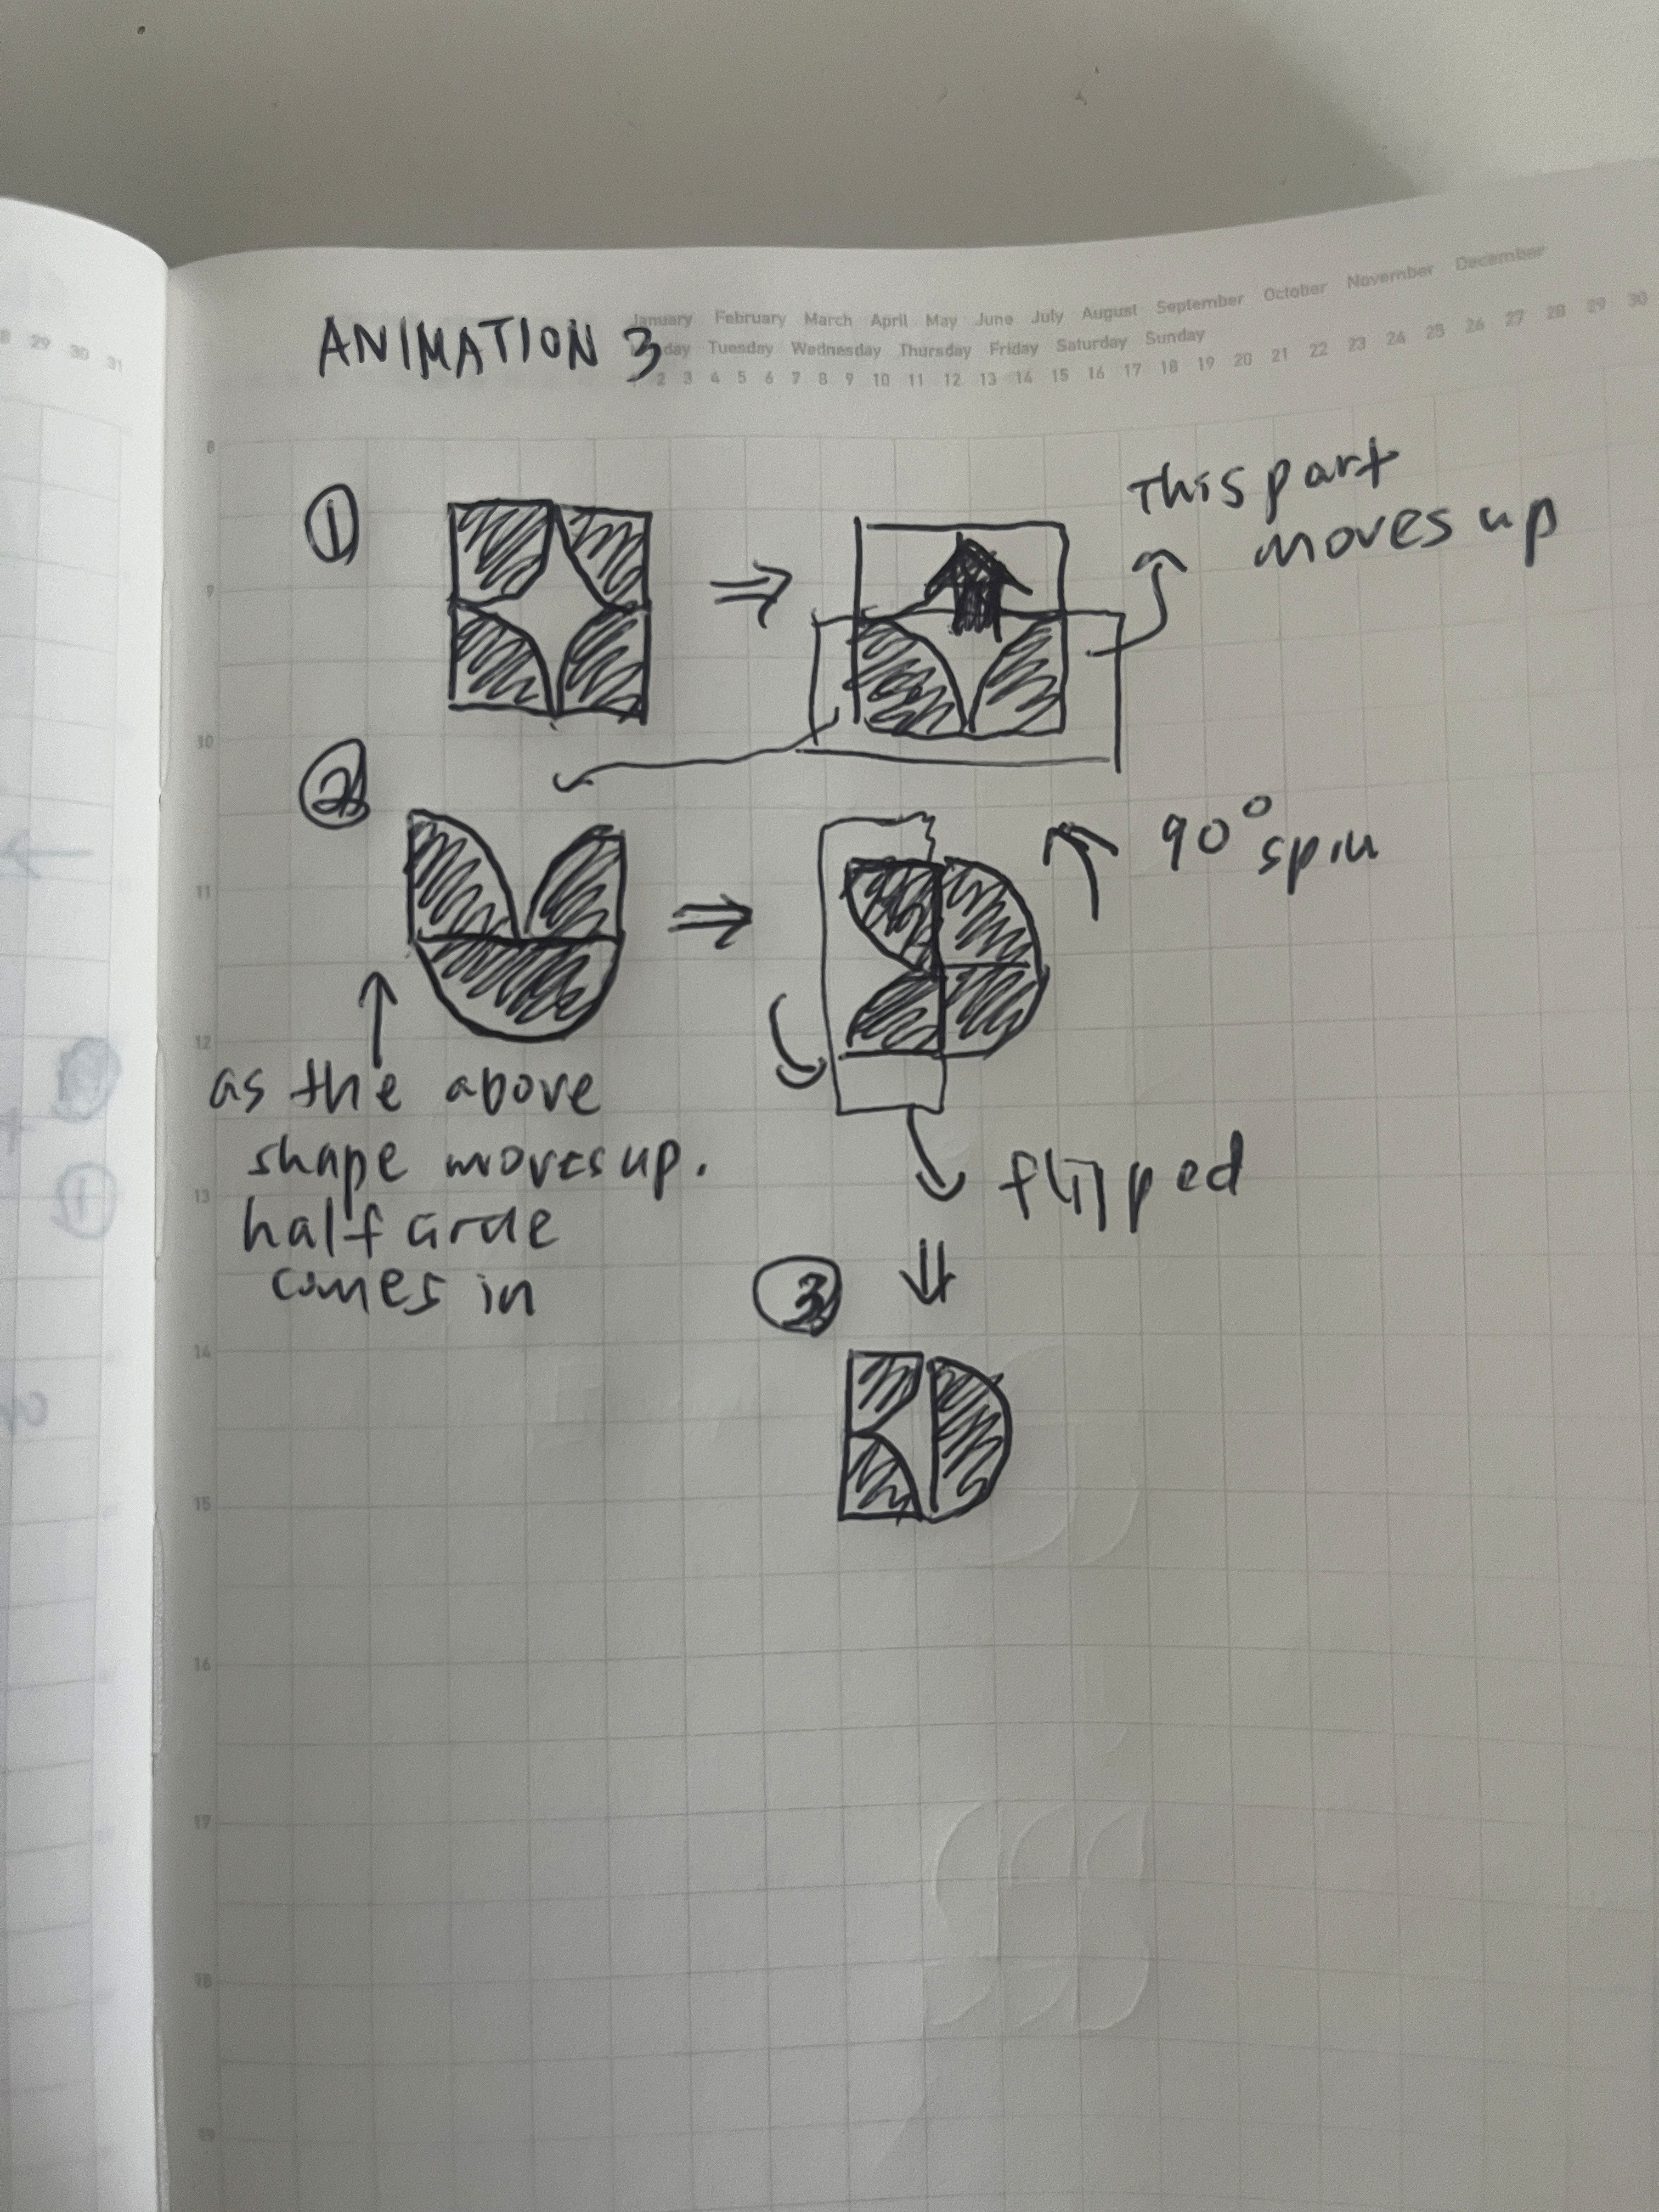 January February March April May June July August September October November December
ANIMATION 3
day Tuesday Wednesday Thursday Friday Saturday Sunday
2 3 4 5 6 7 8 9 10 11 12 13 14 15 16 17 18 19 20 21 22 23 24 25 26 27 28 29 30
29 30 31
8
This part
moves up
1
9
10
2
90° spin
11
12
as the above
shape moves up.
half circle
comes in
flipped
13
3
14
15
16
17
18
19